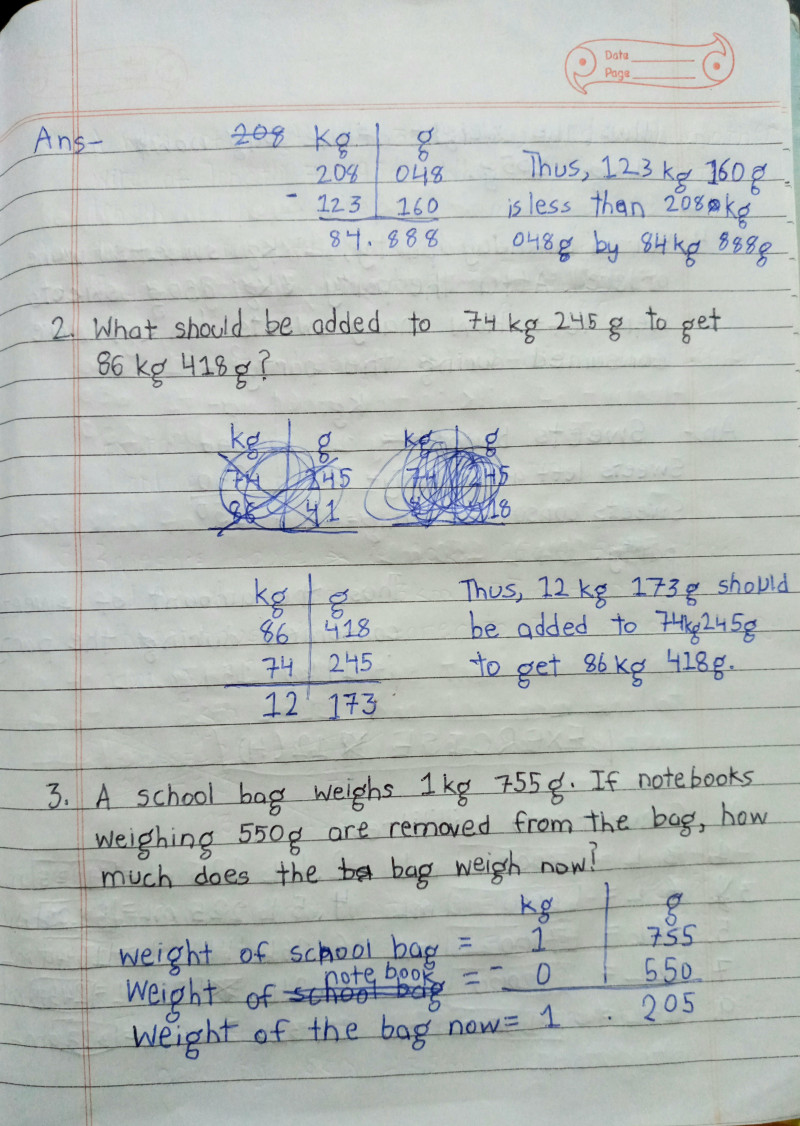 Date
Page
Ans- 208 kg g
208 048
- 123 160
84.888
Thus, 123 kg 160 g
is less than 208 kg
048g by 84 kg 888g
2. What should be added to 74 kg 245 g to get
86 kg 418 g?
kg g
74 245
86 41
kg g
74 245
418
kg g
86 418
74 245
12 173
Thus, 12 kg 173 g should
be added to 74kg245g
to get 86 kg 418g.
3. A school bag weighs 1 kg 755 g. If notebooks
weighing 550g are removed from the bag, how
much does the ba bag weigh now?
kg g
weight of school bag = 1 755
note book
Weight of school bag = - 0 550
Weight of the bag now = 1 . 205